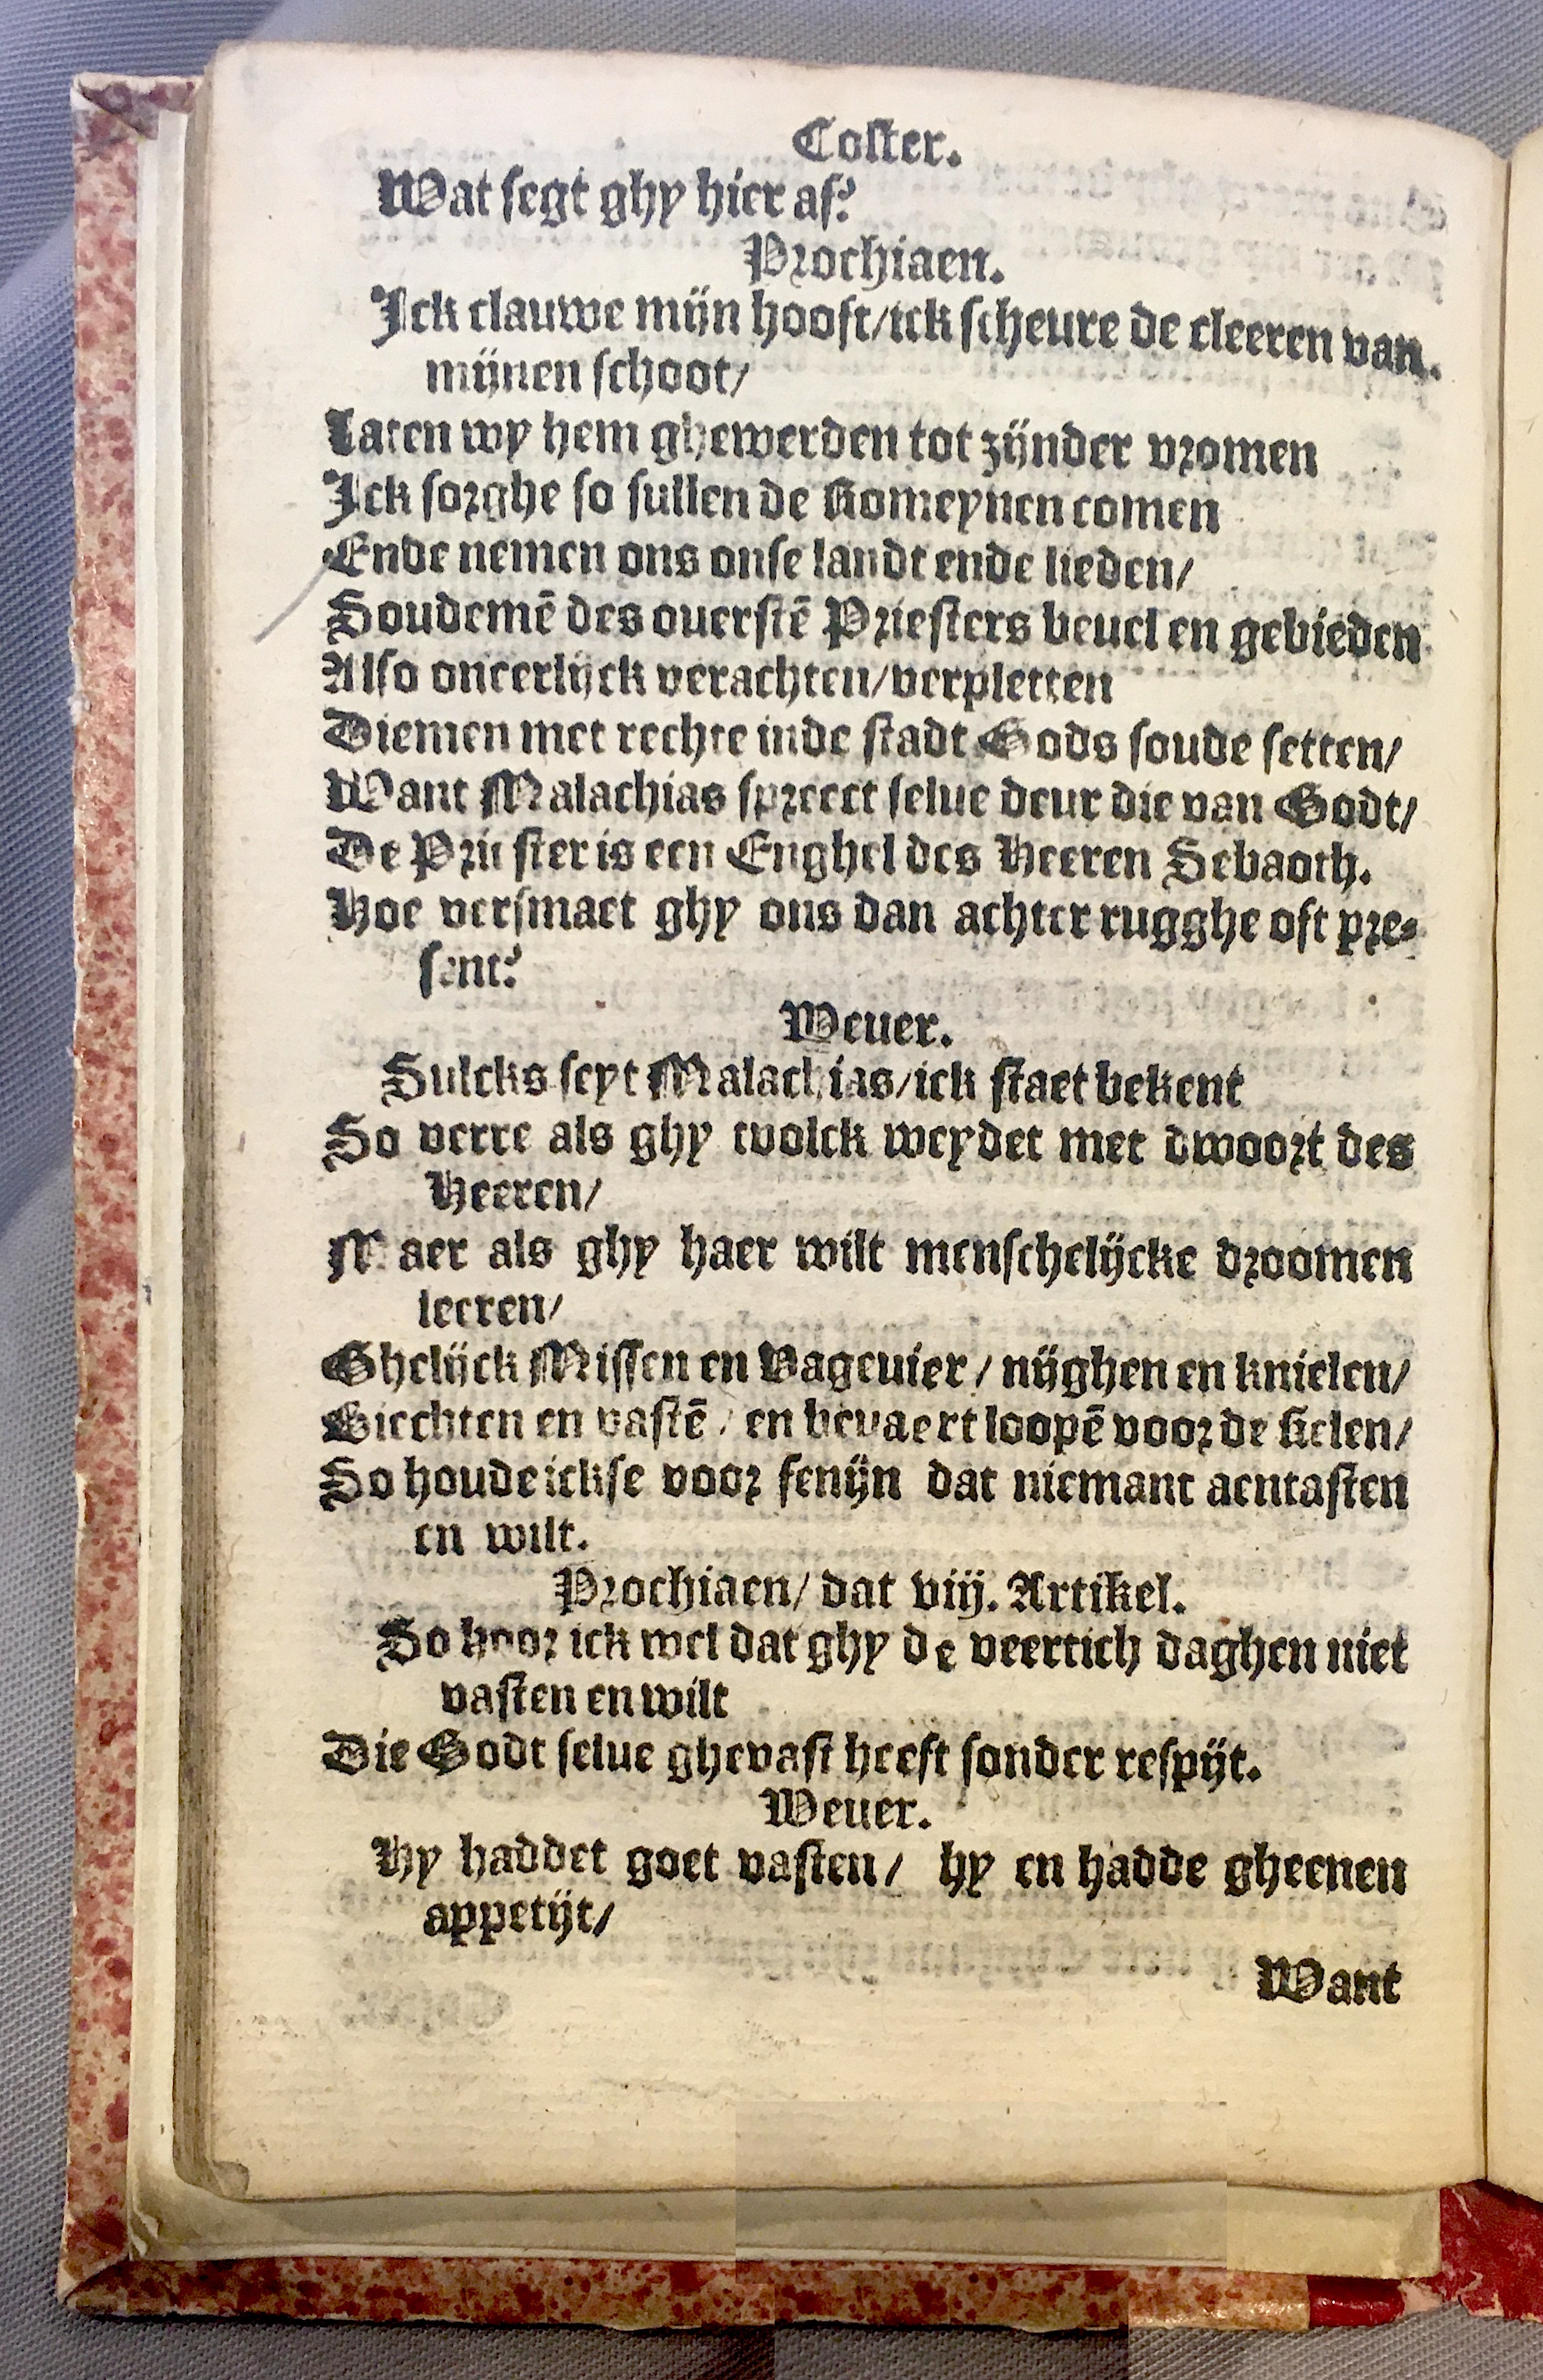 Coster.
Wat segt ghy hier af?
Prochiaen.
Ick clauwe mijn hooft/ick scheure de cleeren van
mijnen schoot/
Laten wy hem ghewerden tot zijnder vromen
Ick sorghe so sullen de Romeynen comen
Ende nemen ons onse landt ende lieden/
Soudemē des ouerstē Priesters beuel en gebieden
Also oneerlijck verachten/verpletten
Diemen met rechte inde stadt Gods soude setten/
Want Malachias spreect selue deur die van Godt/
De Priester is een Enghel des Heeren Sebaoth.
Hoe versmaet ghy ons dan achter rugghe oft pre-
sent?
Weuer.
Sulcks seyt Malachias/ick staet bekent
So verre als ghy tvolck weydet met dwoort des
Heeren/
Maer als ghy haer wilt menschelijcke droomen
leeren/
Ghelijck Missen en Vageuier/ nijghen en knielen/
Biechten en vastē/ en bevaert loopē voor de sielen/
So houde ickse voor fenijn dat niemant aentasten
en wilt.
Prochiaen/ dat viij. Artikel.
So hoor ick wel dat ghy de veertich daghen niet
vasten en wilt
Die Godt selue ghevast heeft sonder respijt.
Weuer.
Hy haddet goet vasten/ hy en hadde gheenen
appetijt/
Want